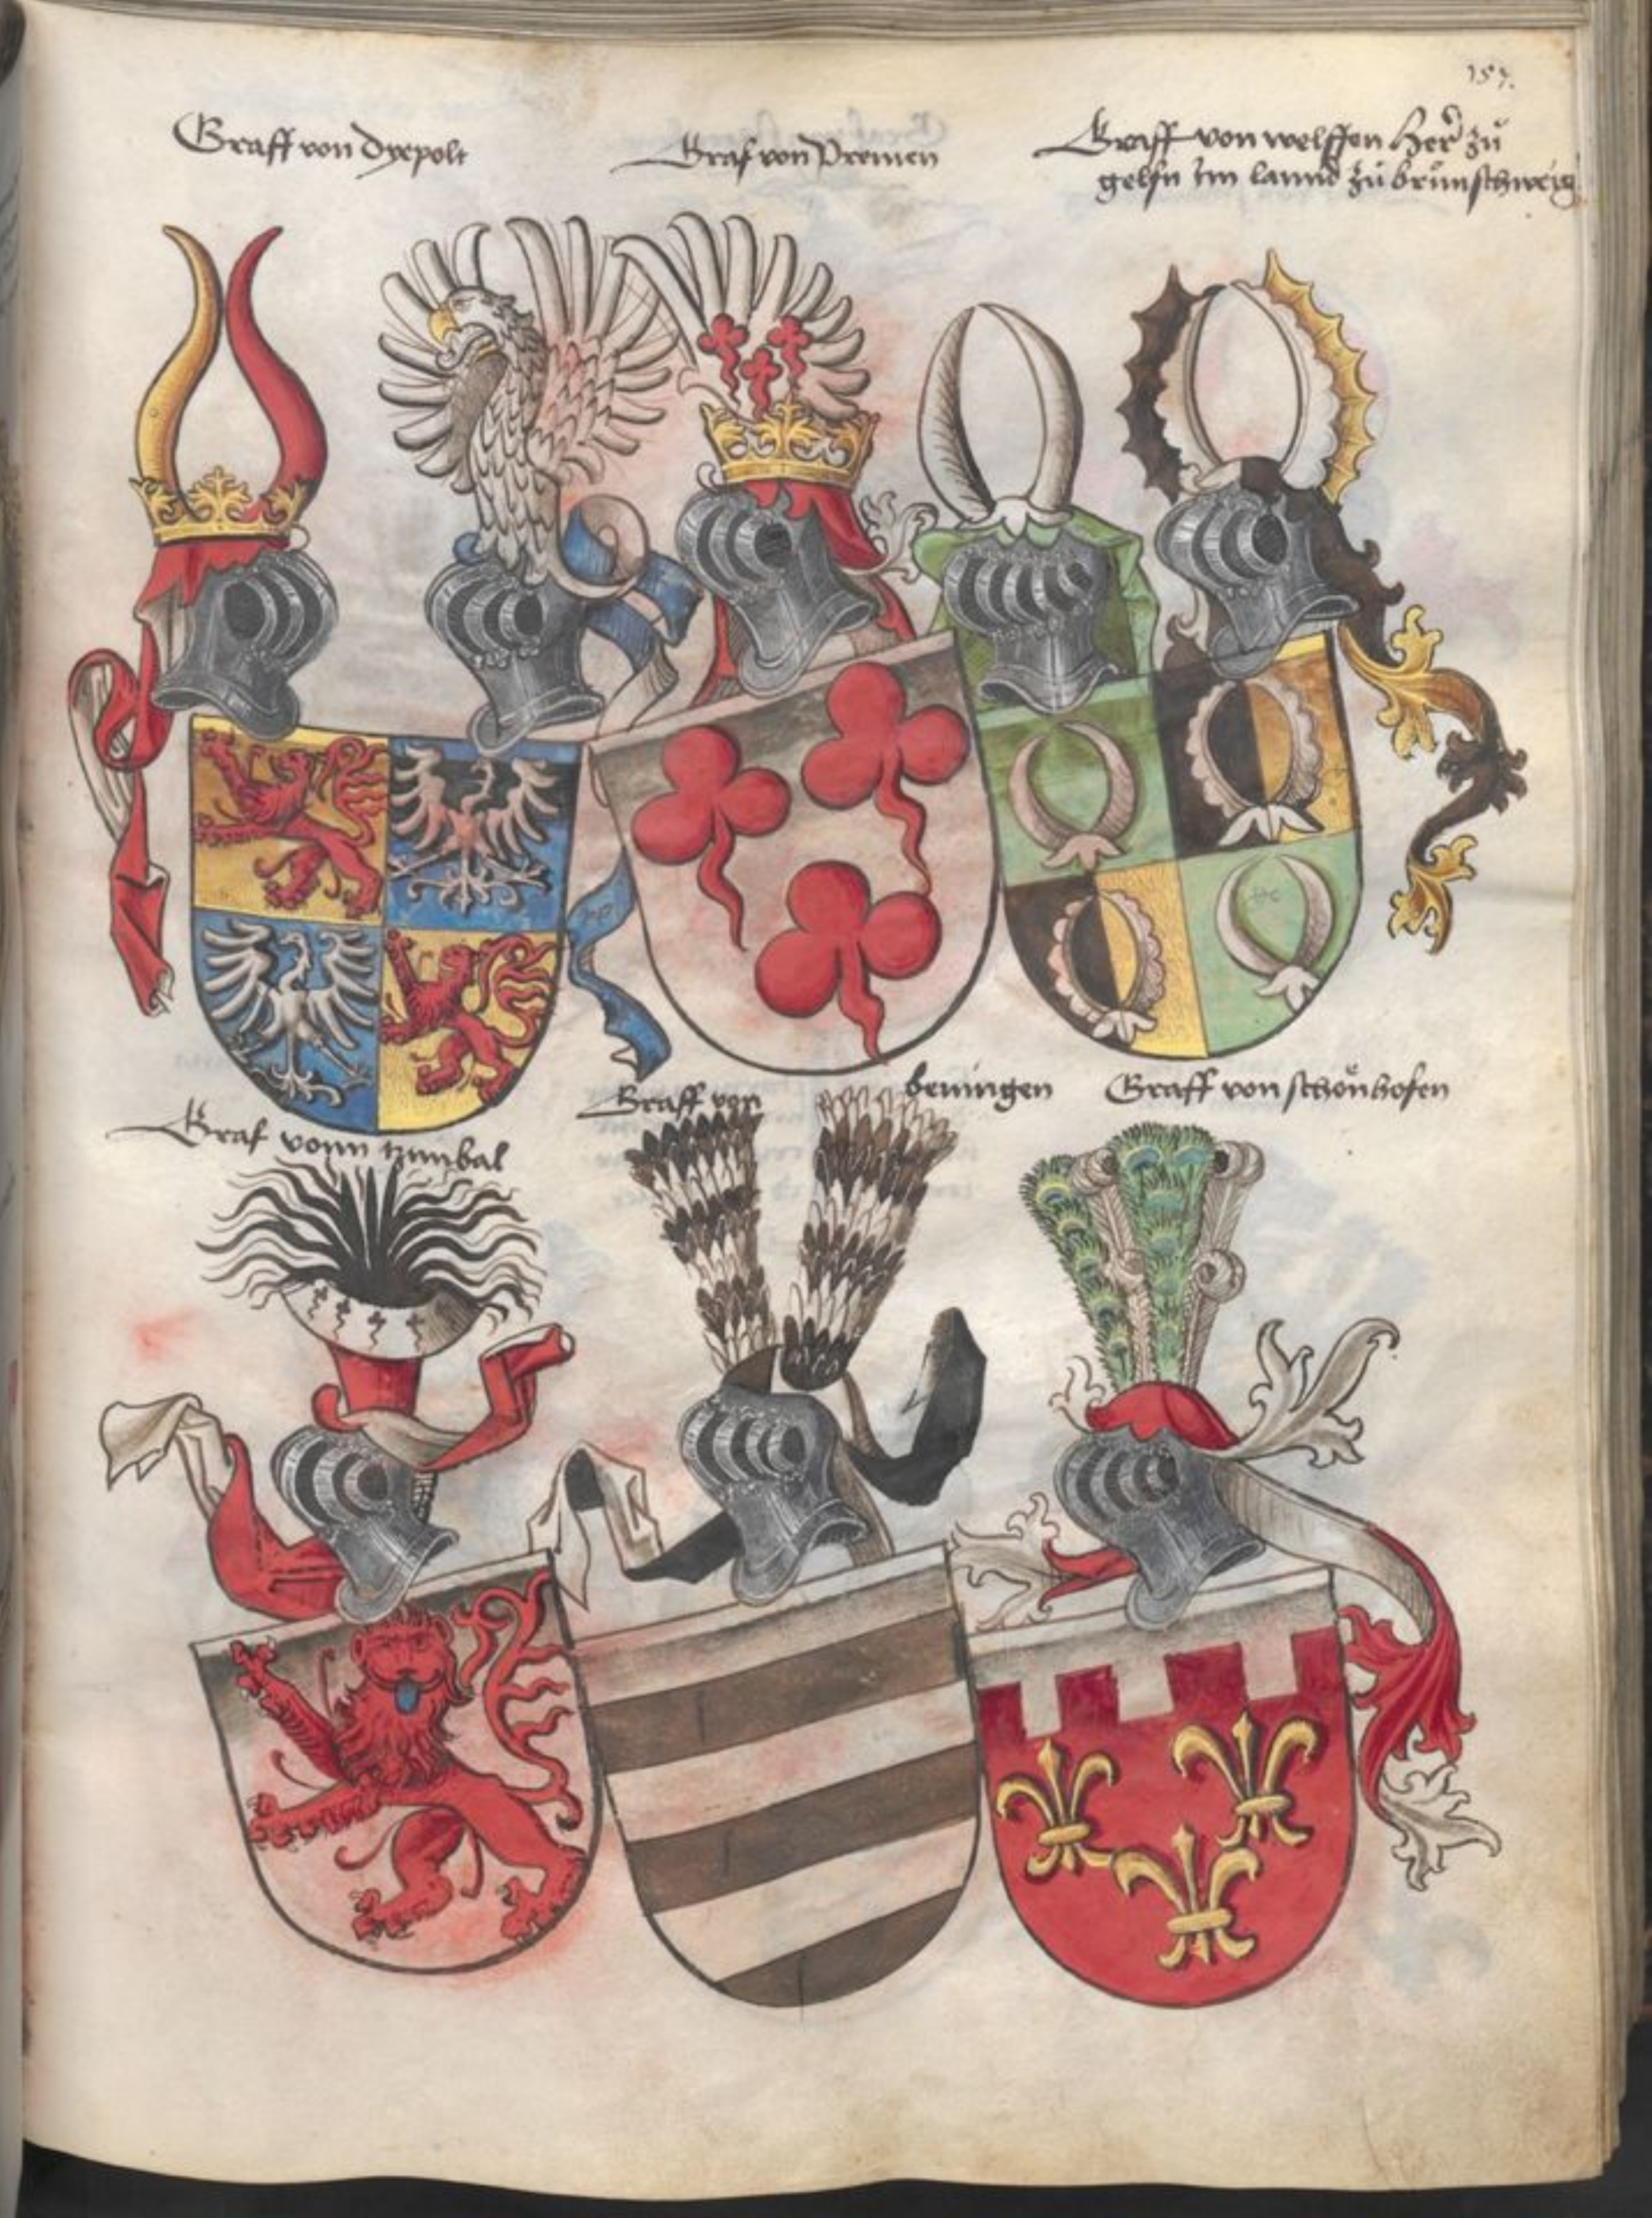 157.
Graff von Dyepolt
Graf von Premen
Graff von welffen Her zů
gelfn im lannd zů brunschweig
Graf vonn tzimbal
Graff von beningen
Graff von schönhofen